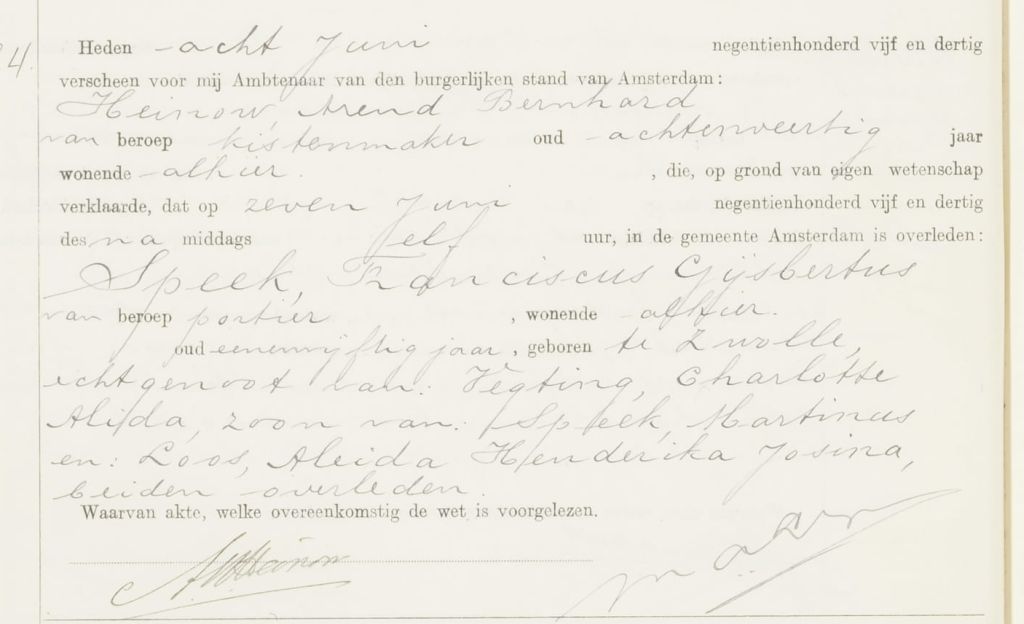 4.
Heden acht Juni negentienhonderd vijf en dertig
verscheen voor mij Ambtenaar van den burgerlijken stand van Amsterdam:
Heinow, Arend Bernhard
van beroep kistenmaker oud achtenveertig jaar
wonende alhier. , die, op grond van eigen wetenschap
verklaarde, dat op zeven Juni negentienhonderd vijf en dertig
des na middags elf uur, in de gemeente Amsterdam is overleden:
Speek, Franciscus Gijsbertus
van beroep portier , wonende alhier.
oud eenenvijftig jaar, geboren te Zwolle,
echtgenoot van: Vegting, Charlotte
Alida, zoon van: Speek, Martinus
en: Loos, Aleida Henderika Josina,
beiden overleden.
Waarvan akte, welke overeenkomstig de wet is voorgelezen.